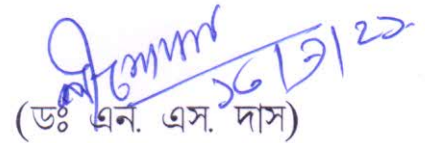 ১৬/৩/২১
(ডঃ এন. এস. দাস)